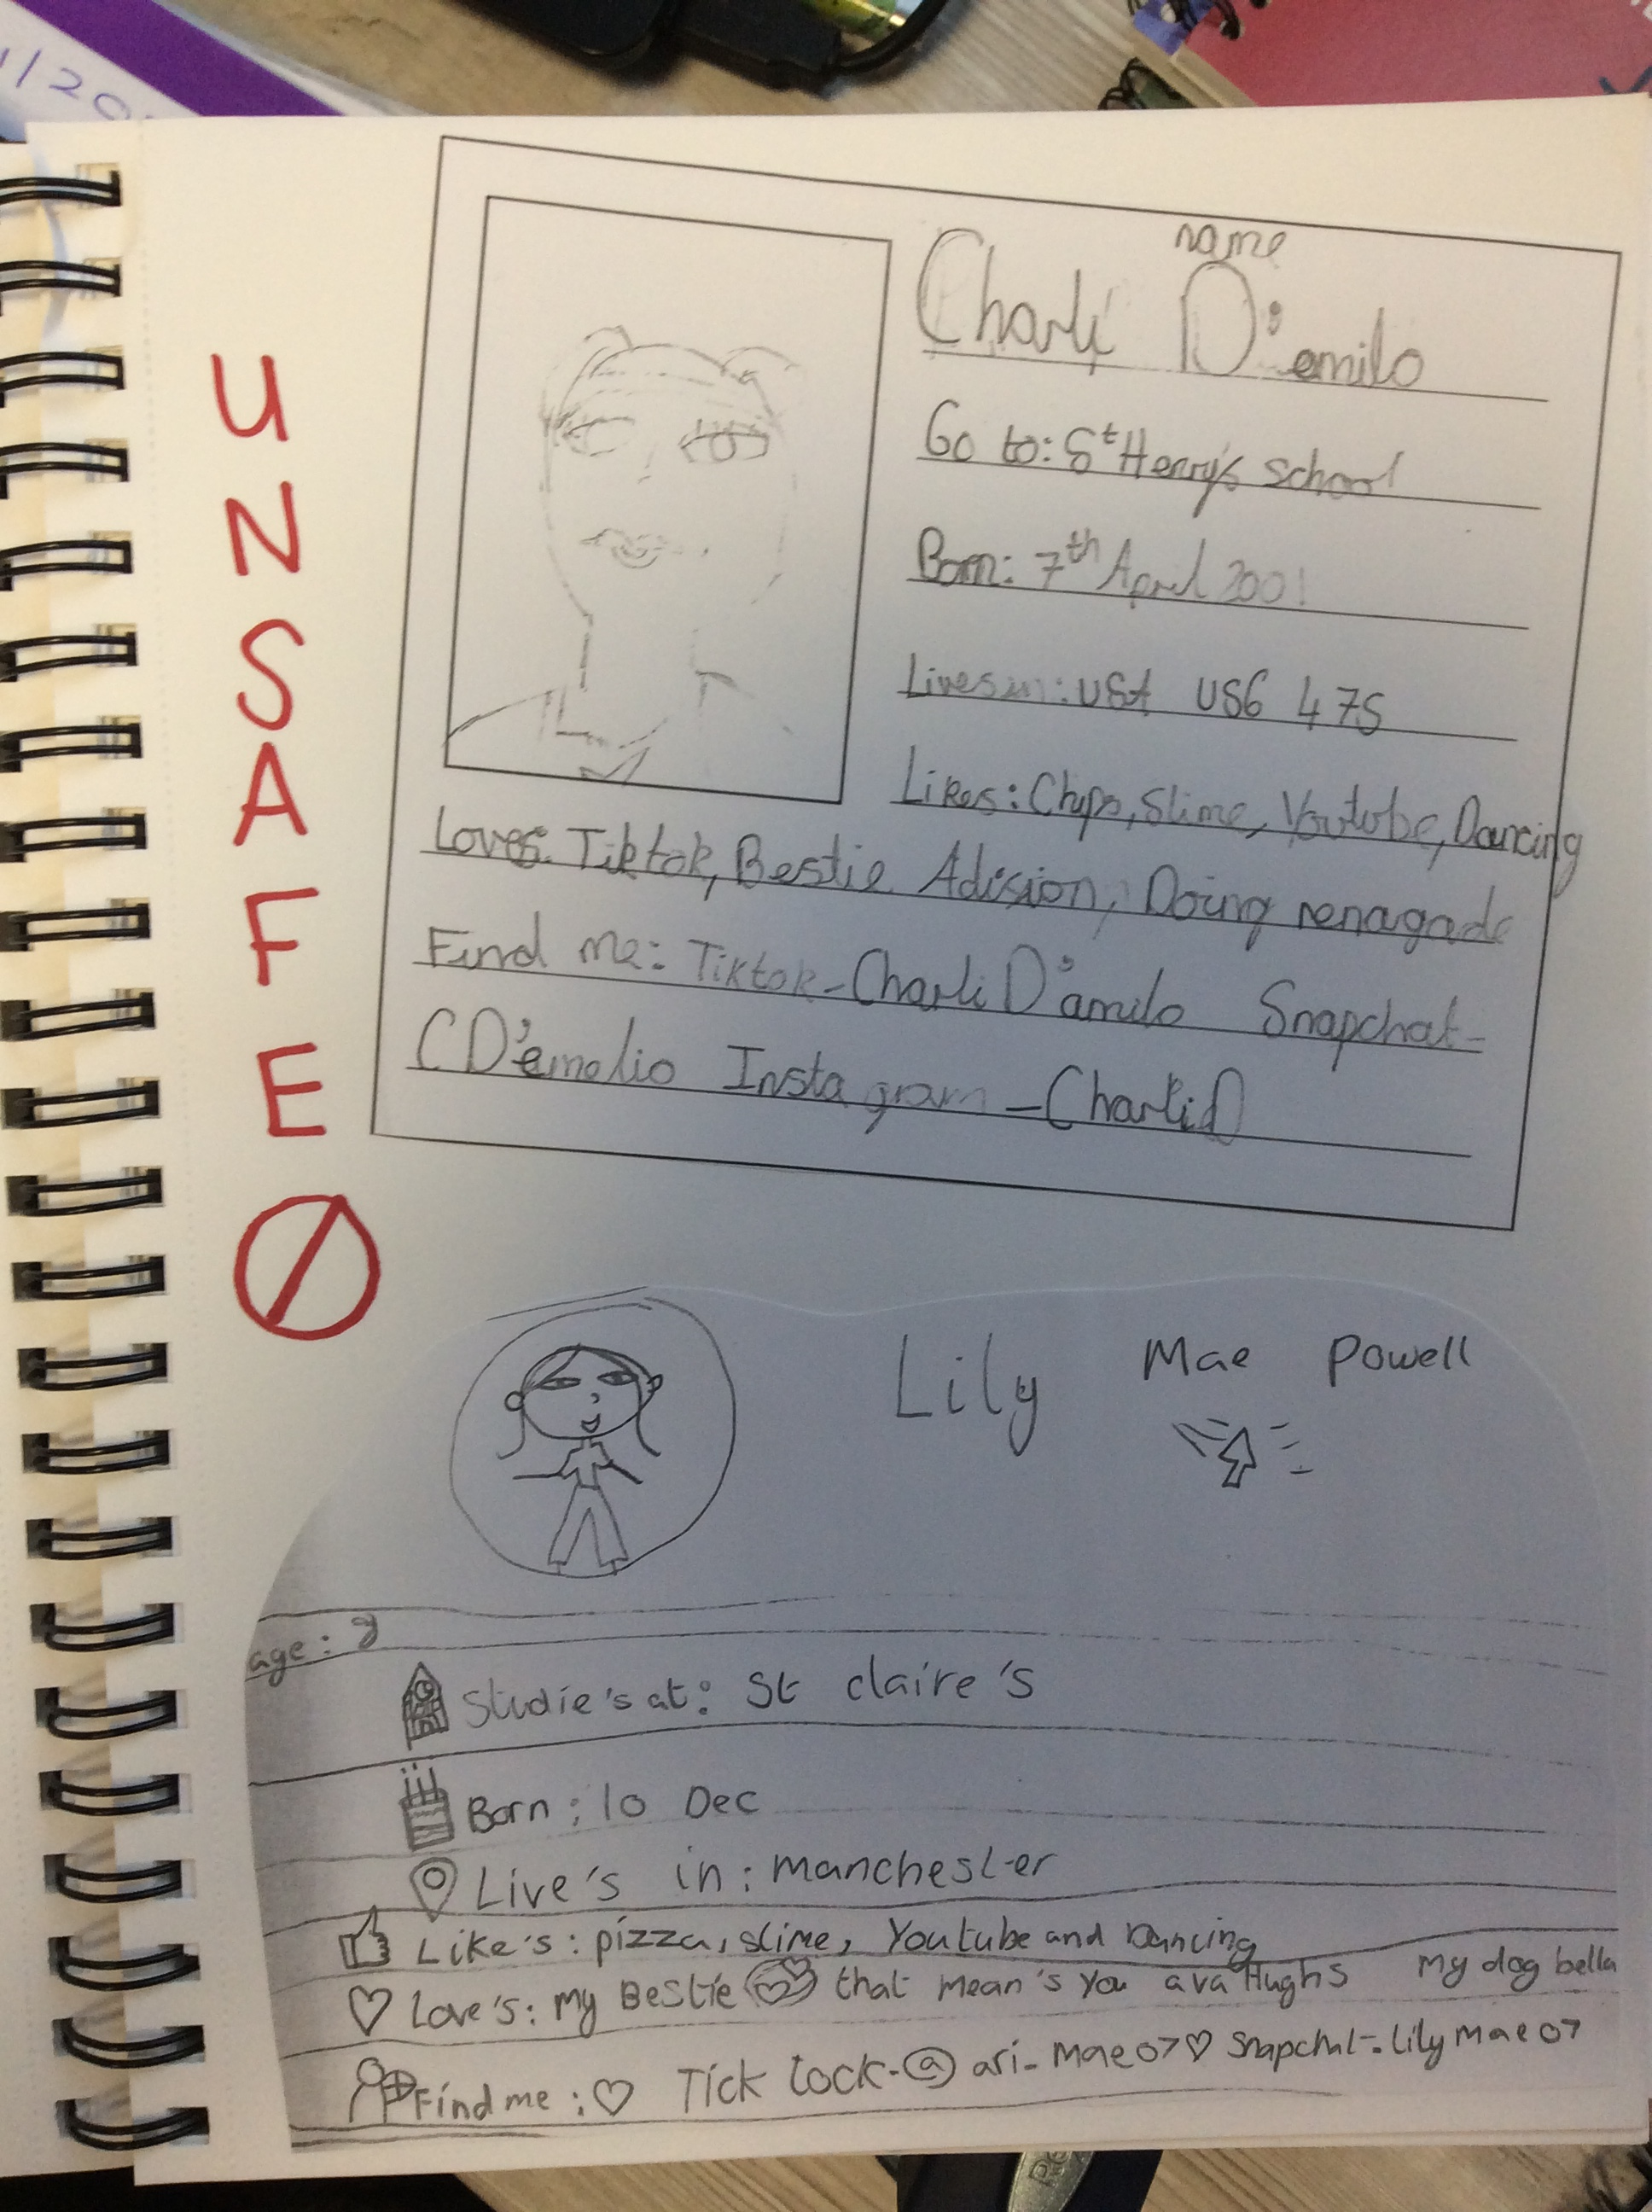 UNSAFE
name
Charli D'emilo
Go to: St Henry's school
Born: 7th April 2001
Lives in: USA US6 475
Likes: Chips, Slime, Youtube, Dancing
Loves: Tiktok, Bestie Adision, Doing renagade
Find me: Tiktok-Charli D'amilo Snapchat-
CD'emelio Instagram-CharliD
Lily Mae Powell
age:
Studie's at: St claire's
Born: 10 Dec
Live's in: manchester
Like's: pizza, slime, Youtube and Dancing
Love's: my Bestie that mean's you ava Hughs my dog bella
Find me: Tick tock-@ ari-mae07 Snapchat-lilymae07